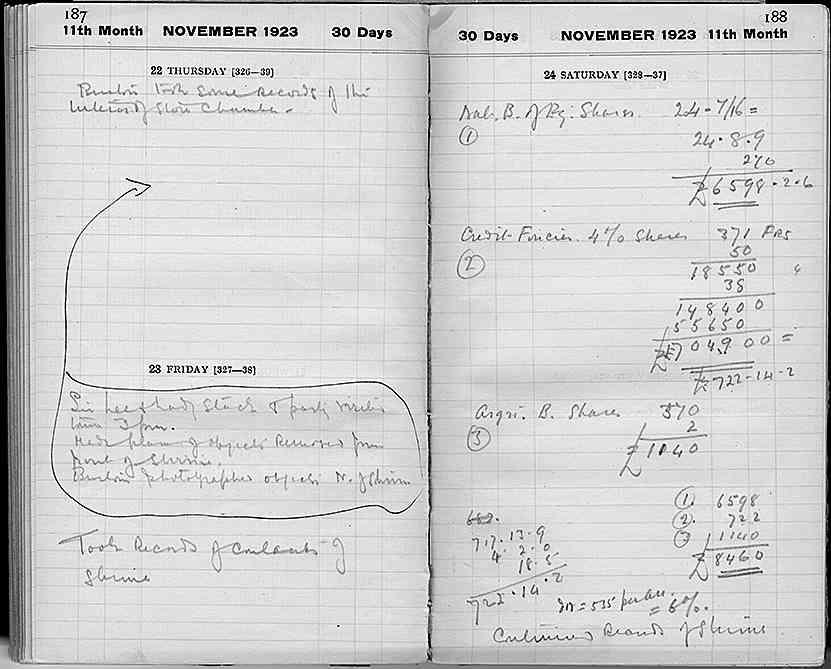 187
11th Month NOVEMBER 1923 30 Days
22 THURSDAY [326—39]
Burton took some records of the
interior of Store Chamber.
23 FRIDAY [327—38]
Sir Lee & Lady Stack & party visited
tomb 3 pm.
Made plan of objects removed from
front of Shrine.
Burton photographed objects N. of Shrine
Took Records of contents of
Shrine
188
30 Days NOVEMBER 1923 11th Month
24 SATURDAY [328—37]
Nat. B. of Eg. Shares. 24-7/16 =
① 24.8.9
270
£6598.2.6
Credit Foncier. 4% Shares 371 FRS
② 50
18550
38
148400
55650
704900 =
£722-14-2
Agri. B. Shares 570
③ 2
£1140
① 6598
② 722
③ 1140
£8460
717.13.9
4.2.0
18.5
722.14.2
= 535
= 6%.
Continued Records of Shrine